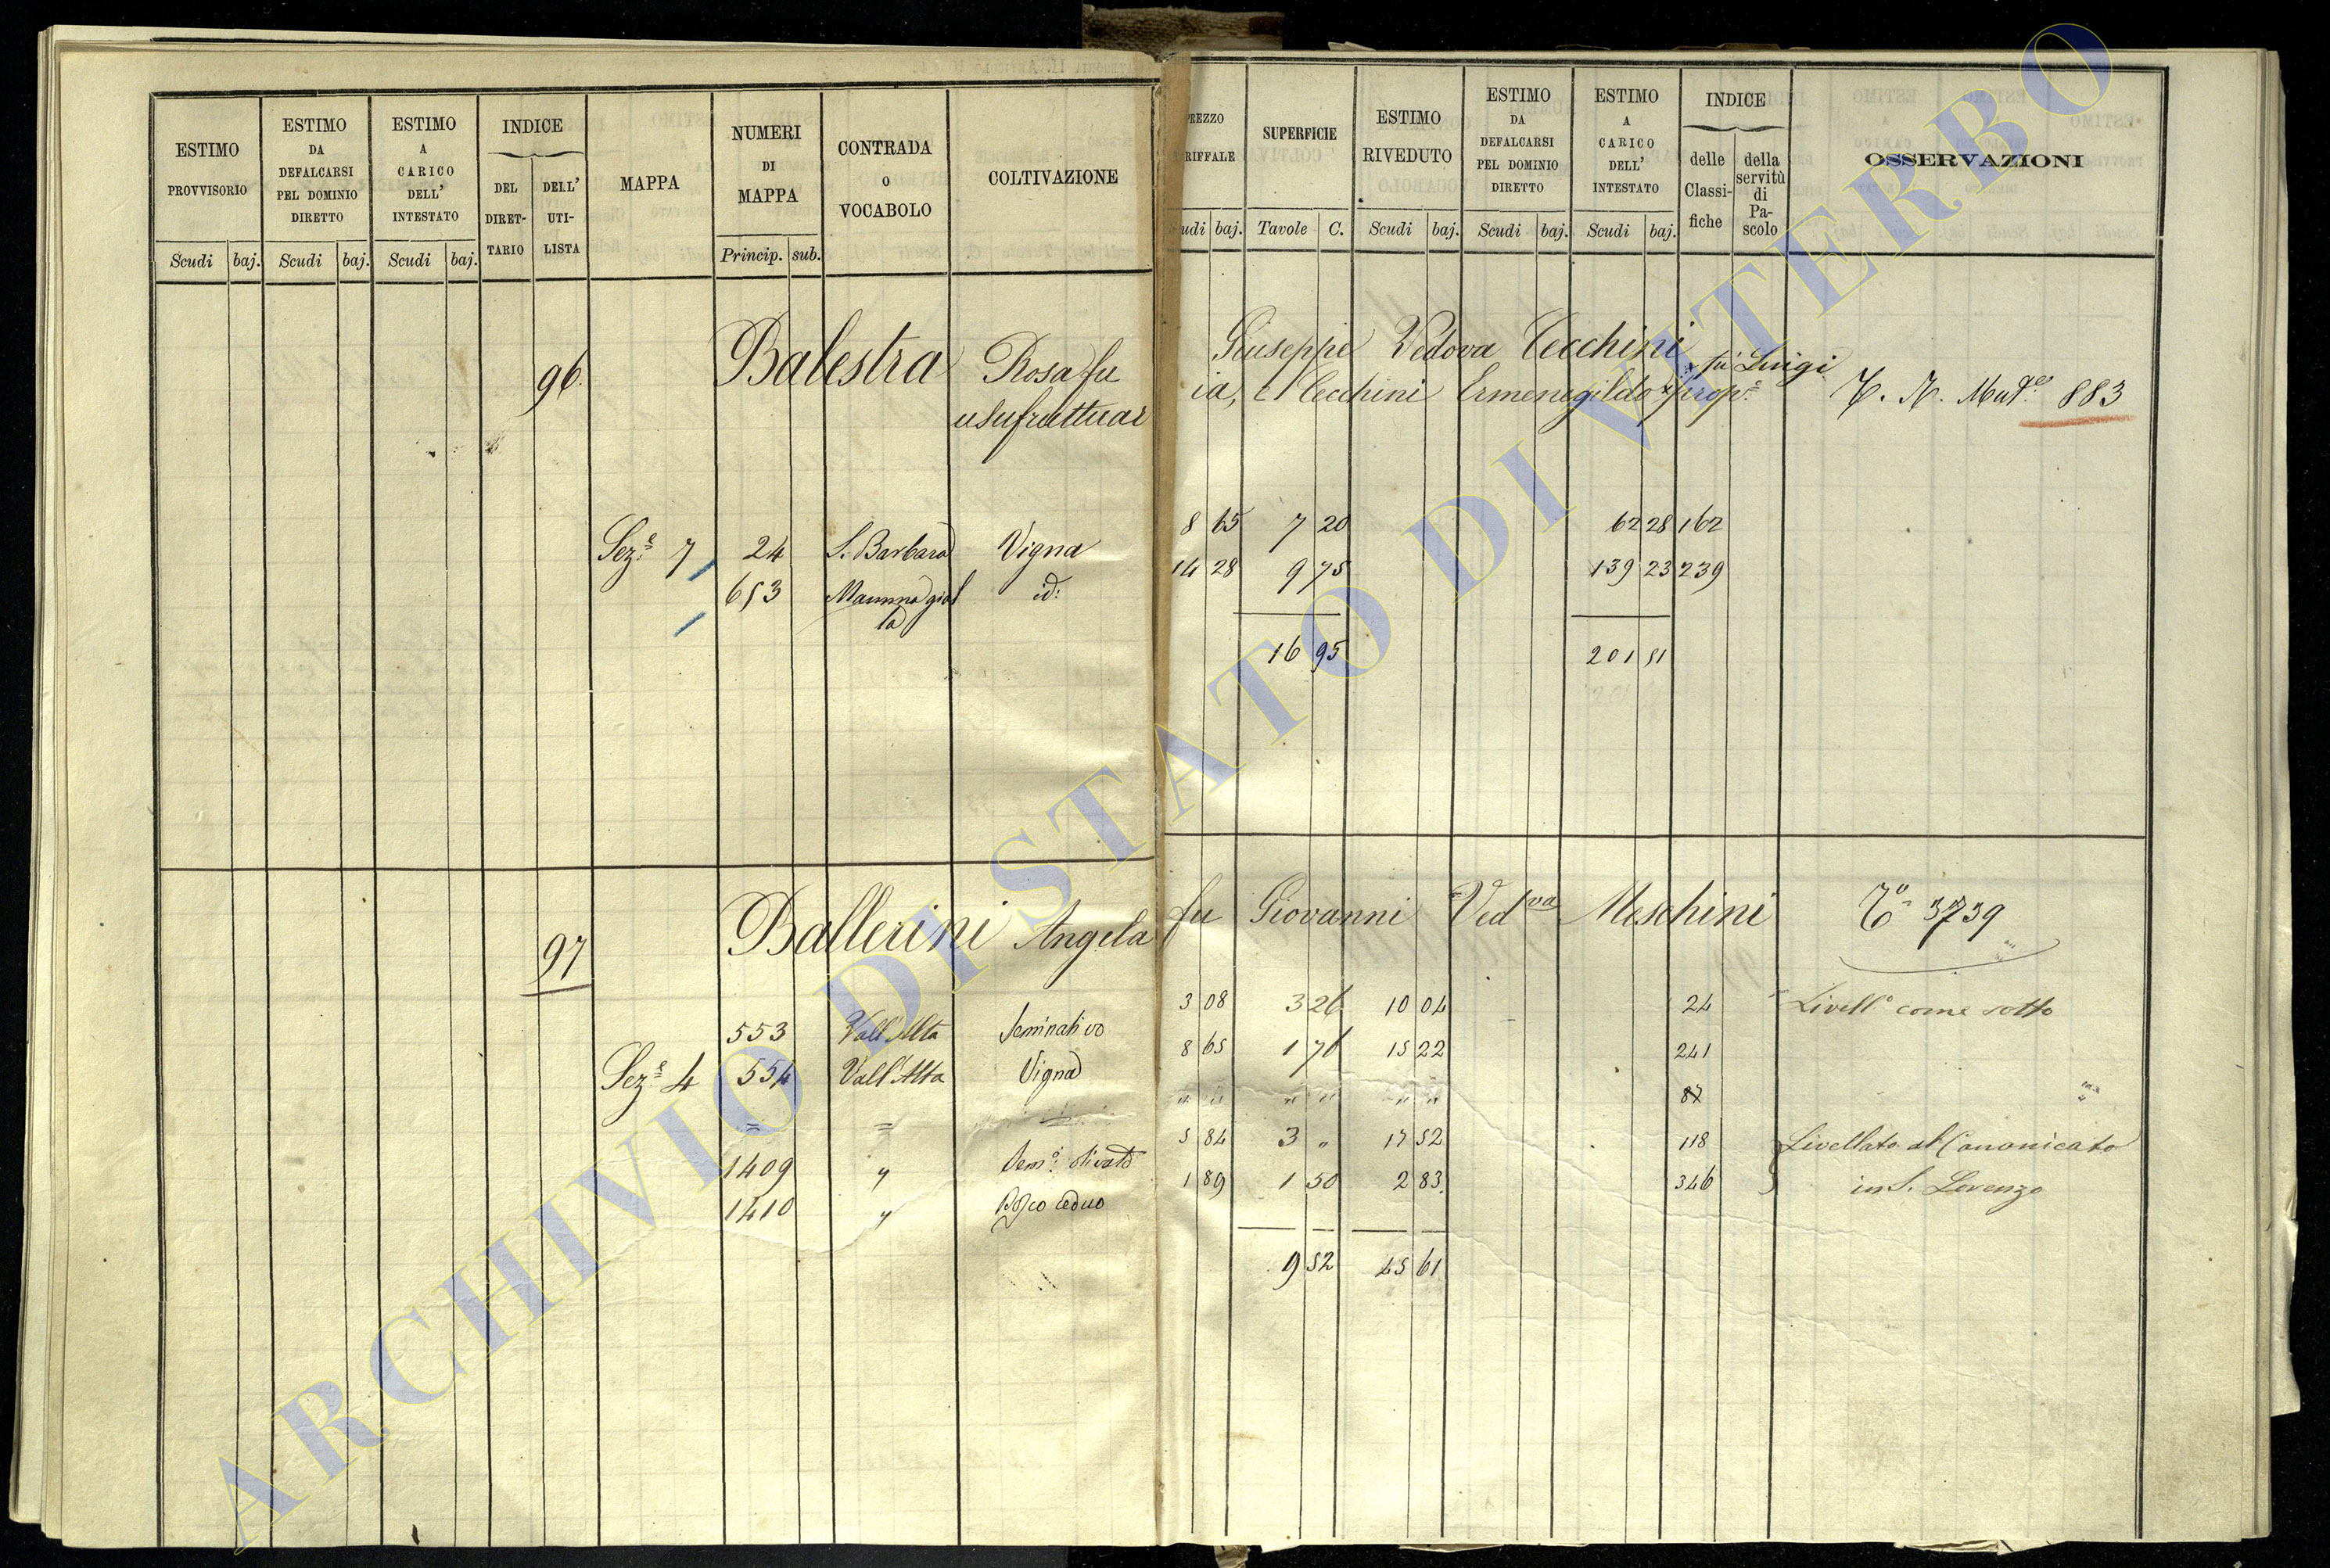 ESTIMO PROVVISORIO Scudi baj.
ESTIMO DA DEFALCARSI PEL DOMINIO DIRETTO Scudi baj.
ESTIMO A CARICO DELL' INTESTATO Scudi baj.
INDICE DEL DIRET-TARIO DELL' UTI-LISTA
MAPPA
NUMERI DI MAPPA Princip. sub.
CONTRADA O VOCABOLO
COLTIVAZIONE
REZZO RIFFALE udi baj.
SUPERFICIE Tavole C.
ESTIMO RIVEDUTO Scudi baj.
ESTIMO DA DEFALCARSI PEL DOMINIO DIRETTO Scudi baj.
ESTIMO A CARICO DELL' INTESTATO Scudi baj.
INDICE delle Classi-fiche della servitù di Pa-scolo
OSSERVAZIONI
96. Balestra Rosa fu Giuseppe Vedova Cecchini
fu Luigi
usufruttuaria, e Cecchini Ermenegildo propº 883
Sezº 7 24 S. Barbara Vigna 8 65 7 20 62 28 162
653 id: 14 28 9 75 139 23 239
16 95 201 51
97 Ballerini Angela fu Giovanni Vedva Meschini 3739
553 Vall'Alta Seminativo 3 08 3 26 10 04 24 Livellº come sotto
Sezº 4 554 Vall'Alta Vigna 8 65 1 76 15 22 241
= = " " " " " " 87
1409 " Semº olivato 5 84 3 " 17 52 118 Livellato al Canonicato
1410 " Bosco ceduo 1 89 1 50 2 83 346 in S. Lorenzo
9 52 45 61
ARCHIVIO DI STATO DI VITERBO